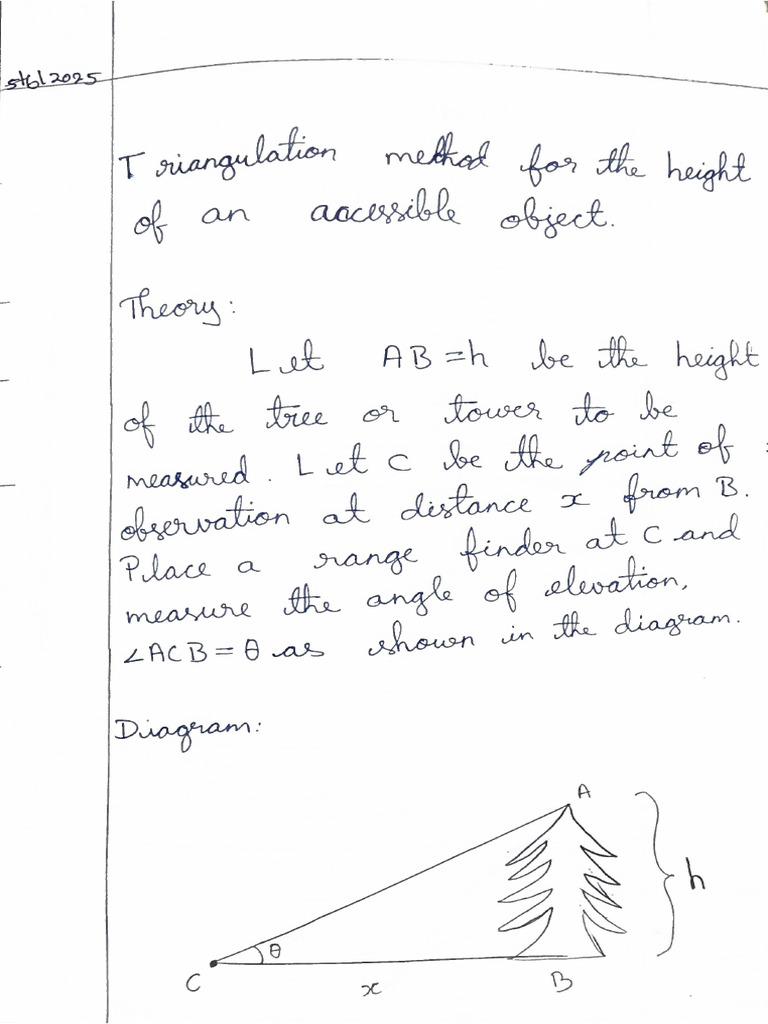 5/6/2025
Triangulation method for the height
of an accessible object.
Theory:
Let AB = h be the height
of the tree or tower to be
measured. Let C be the point of
observation at distance x from B.
Place a range finder at C and
measure the angle of elevation,
∠ACB = θ as shown in the diagram.
Diagram:
A
h
θ
C
x
B